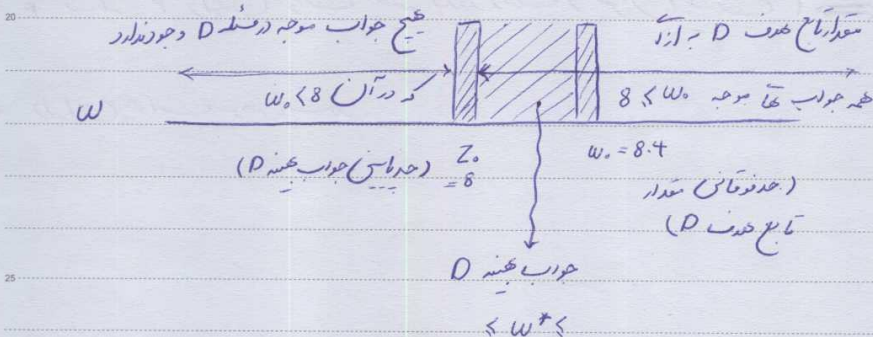 20
هیچ جواب موجه در مسئله D وجود ندارد
مقدار تابع هدف D به ازاء
که در آن w₀<8
همه جواب های موجه 8 ≤ w₀
w
Z₀
=8
(حد پایینی جواب بهینه D)
w₀=8.4
(حد فوقانی مقدار
تابع هدف D)
25
جواب بهینه D
≤ w* ≤